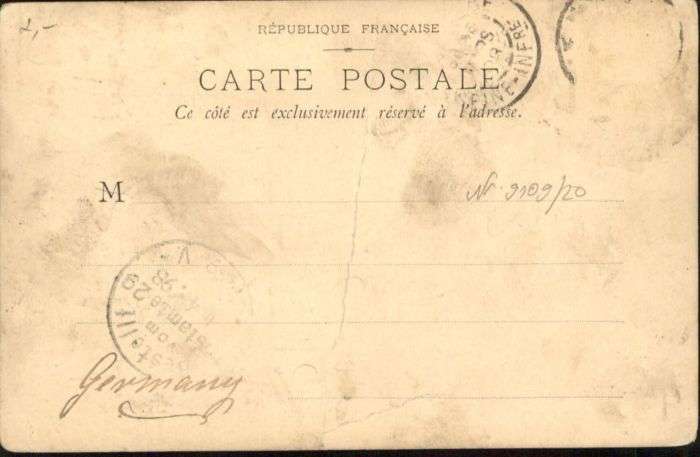 2,-
RÉPUBLIQUE FRANÇAISE
CARTE POSTALE
Ce côté est exclusivement réservé à l'adresse.
SEINE-INFRE
M
Nr. 9109/20
V
98
29
vom
Germany